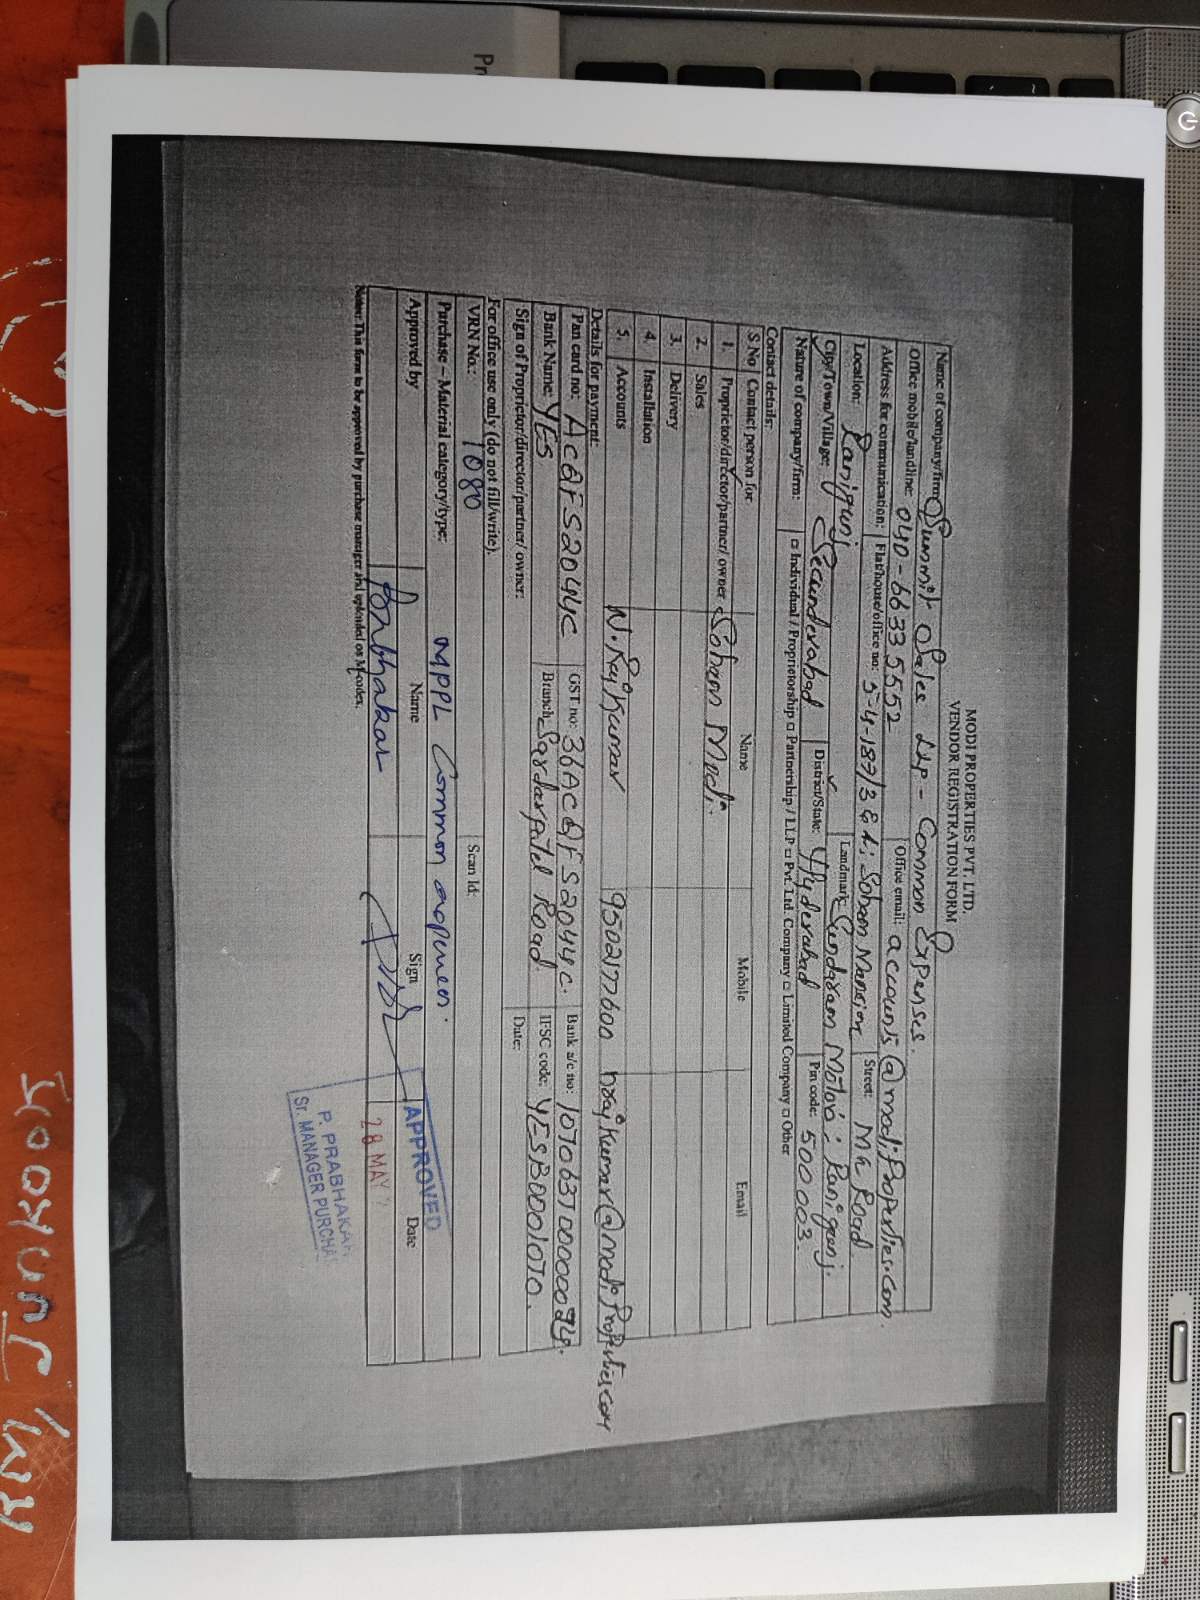 MODI PROPERTIES PVT. LTD.
VENDOR REGISTRATION FORM
Name of company/firm: Summit Sales LLP - Common Expenses.
Office mobile/landline: 040-66335552 Office email: accounts@modiproperties.com
Address for communication: Flat/house/office no: 5-4-187/3&4; Soham Mansion Street: MG Road
Location: Ranigunj Landmark: Sundaram Motors; Ranigunj.
City/Town/Village: Secunderabad District/State: Hyderabad Pin code: 500003.
Nature of company/firm: □ Individual / Proprietorship □ Partnership / LLP □ Pvt. Ltd. Company □ Limited Company □ Other
Contact details:
S No Contact person for Name Mobile Email
1. Proprietor/director/partner/ owner Soham Modi.
2. Sales
3. Delivery
4. Installation
5. Accounts N. Rajkumar 9502177600 nrajkumar@modiproperties.com
Details for payment:
Pan card no: ACQFS2044C GST no: 36ACQFS2044C. Bank a/c no:
Bank Name: YES Branch: Sardarpatel Road IFSC code: YESB0001070.
Sign of Proprietor/director/partner/ owner: Date:
For office use only (do not fill/write).
VRN No.: 1080 Scan Id:
Purchase – Material category/type: MPPL Common
Approved by Name Sign Date
Prabhakar 28 MAY
APPROVED
P. PRABHAKAR
Sr. MANAGER PURCHAS
Notes: This form to be approved by purchase manager and uploaded on M-codex.
Pr